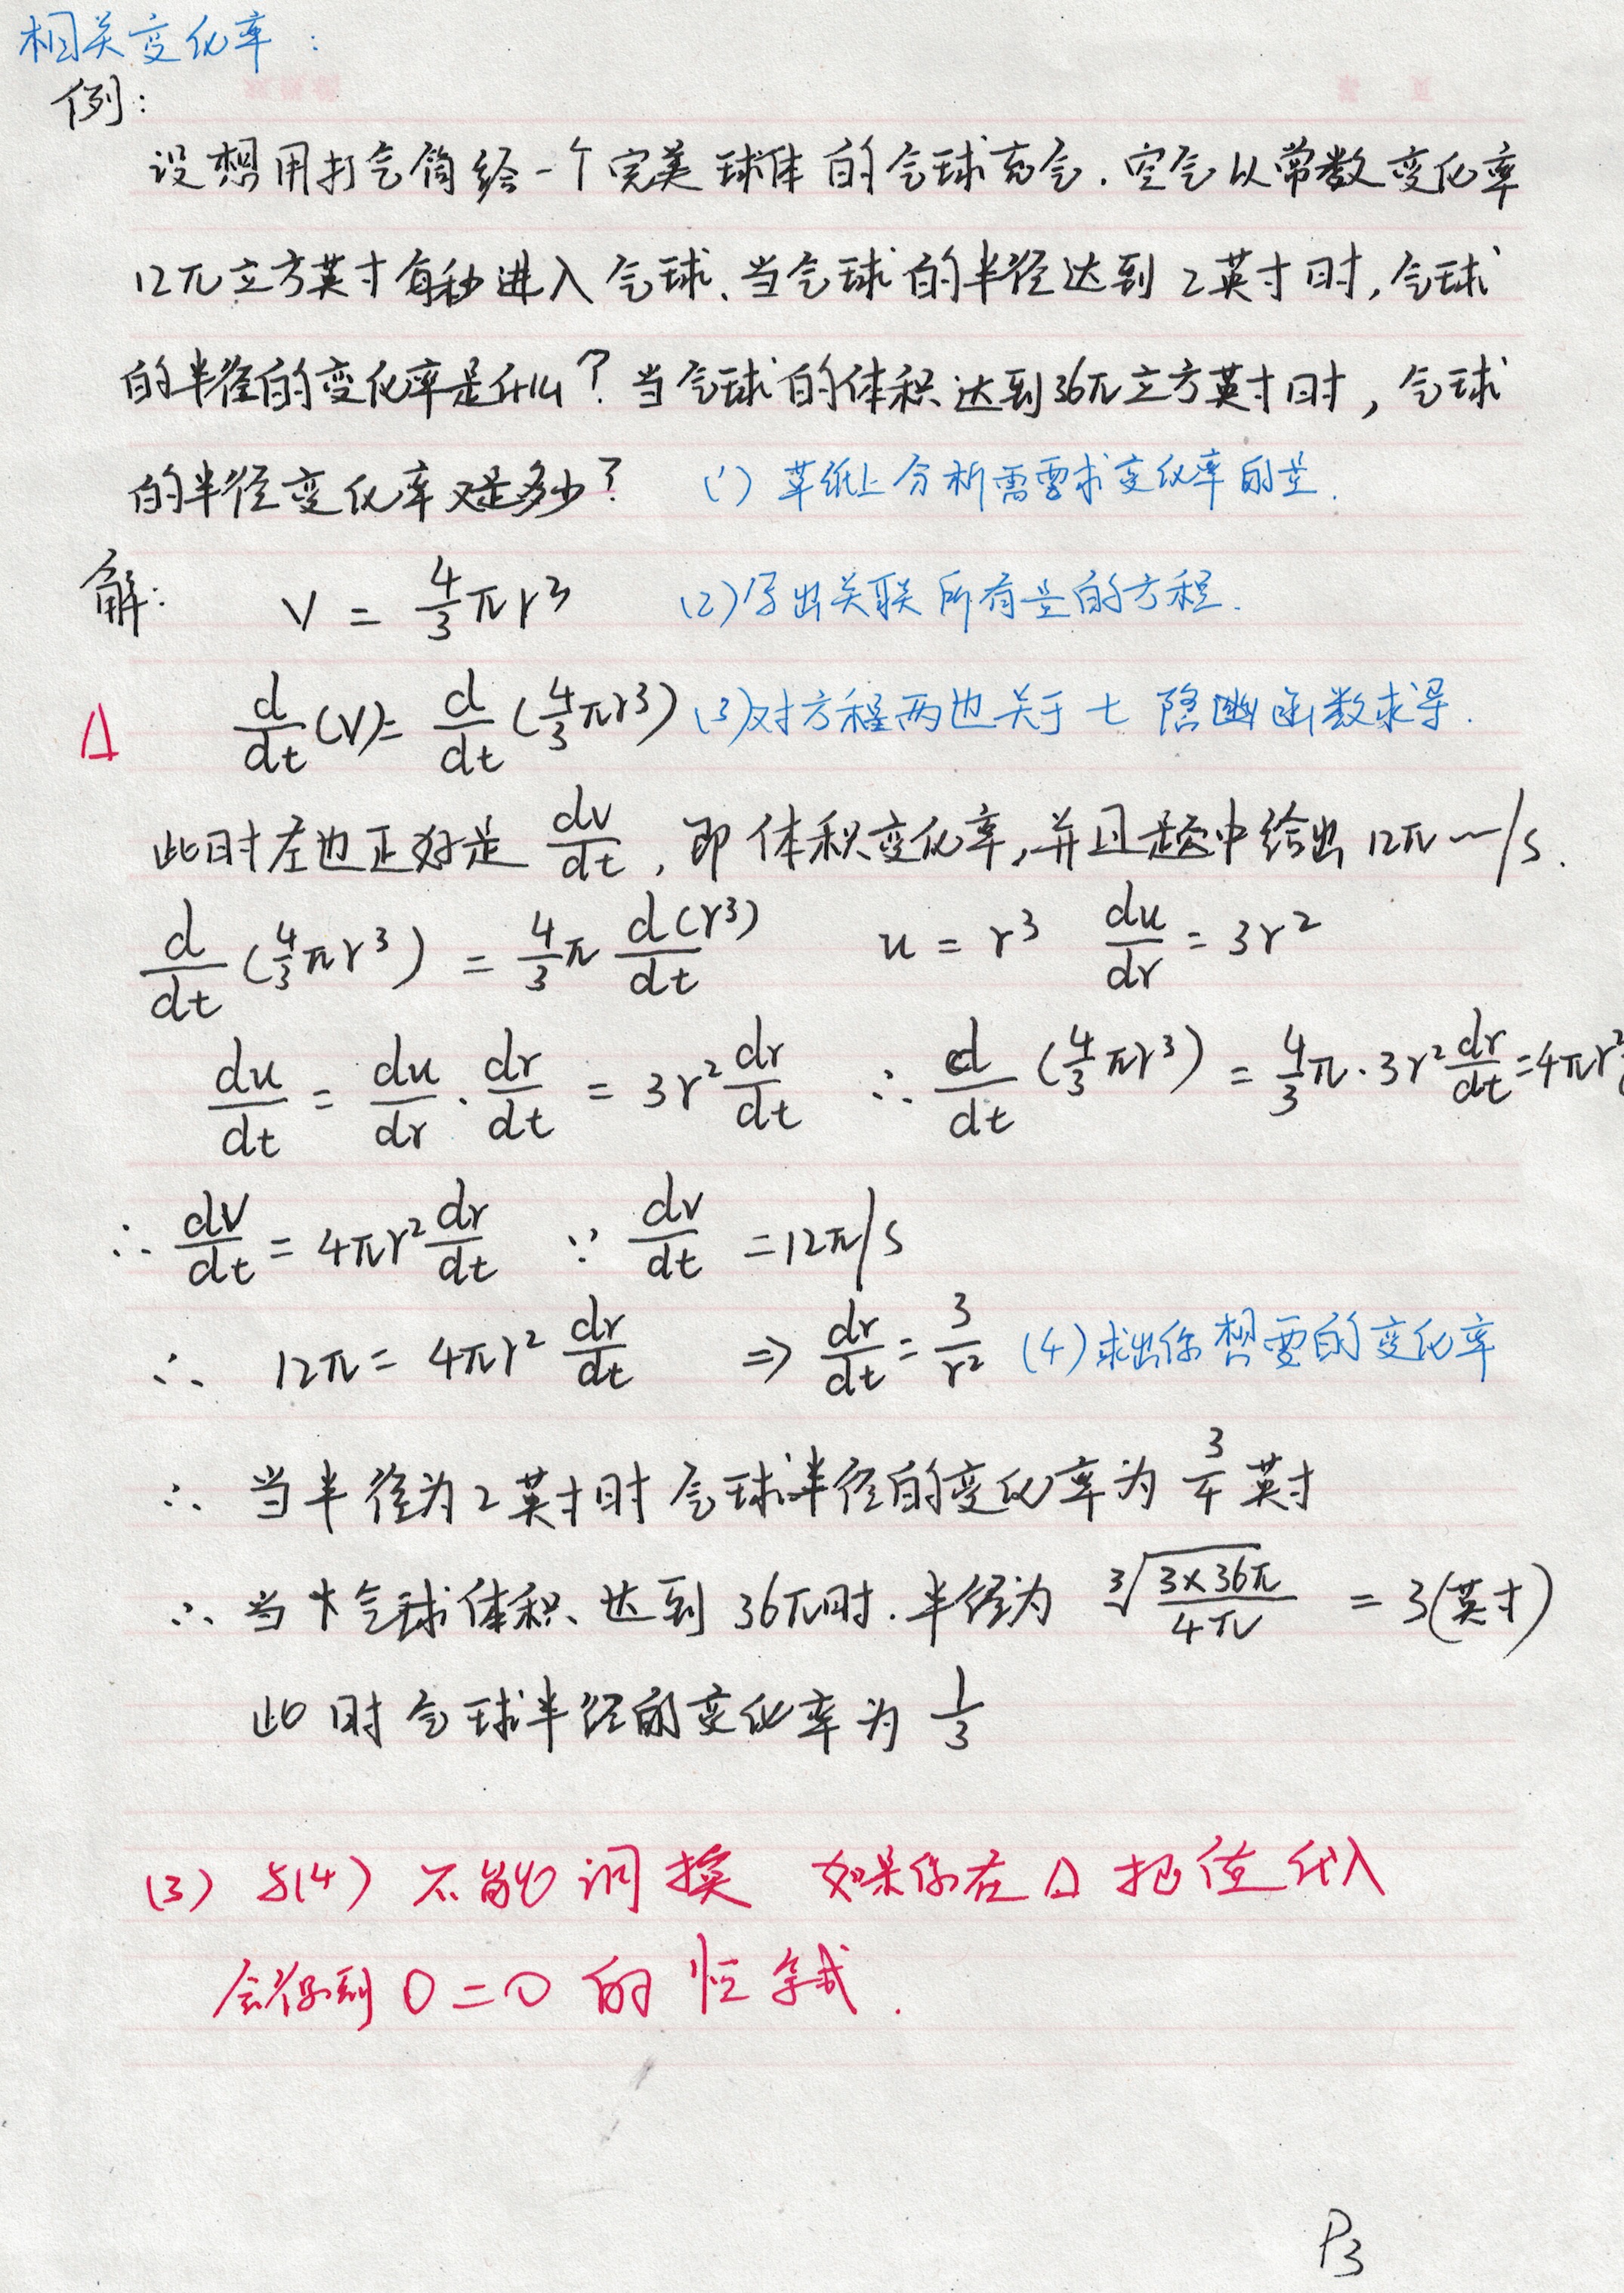 相关变化率：
例：
设想用打气筒给一个完美球体的气球充气．空气以常数变化率
12π立方英寸每秒进入气球、当气球的半径达到2英寸时,气球
的半径的变化率是什么？当气球的体积达到36π立方英寸时，气球
的半径变化率又是多少？ (1) 草纸上分析需要求变化率的量．
解： V = 4/3 πr³ (2)写出关联所有量的方程．
Δ d/dt (V)= d/dt (4/3 πr³) (3)对方程两边关于 t 隐函数求导．
此时左边正好是 dv/dt , 即体积变化率,并且题中给出 12π~/s．
d/dt (4/3 πr³) = 4/3 π d(r³)/dt u = r³ du/dr = 3r²
du/dt = du/dr · dr/dt = 3r² dr/dt ∴ d/dt (4/3 πr³) = 4/3 π · 3r² dr/dt = 4πr²
∴ dV/dt = 4πr² dr/dt ∵ dv/dt = 12π/s
∴ 12π = 4πr² dr/dt ⇒ dr/dt = 3/r² (4)求出你想要的变化率
∴ 当半径为2英寸时气球半径的变化率为 3/4 英寸
∴ 当气球体积达到 36π时．半径为 ³√(3×36π/4π) = 3(英寸)
此时气球半径的变化率为 1/3
(3) 与(4) 不能调换 如果你在 Δ 把值代入
会得到 0=0 的恒等式．
P3